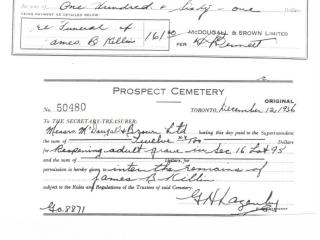 One Hundred & Sixty - one Dollars
BEING PAYMENT AS DETAILED BELOW:
re Funeral of
James B Killin
161.00
McDOUGALL & BROWN LIMITED
PER
PROSPECT CEMETERY
ORIGINAL
No. 50480
TORONTO, December 12, 1956
To THE SECRETARY-TREASURER:
Messrs McDougal & Brown Ltd having this day paid to the Superintendent
the sum of Twelve Dollars
for Reopening adult grave in Sec 16 Lot 95
and the sum of Dollars, for
permission is hereby given to inter the remains of
James B Killin
subject to the Rules and Regulations of the Trustees of said Cemetery.
G.o. 8871